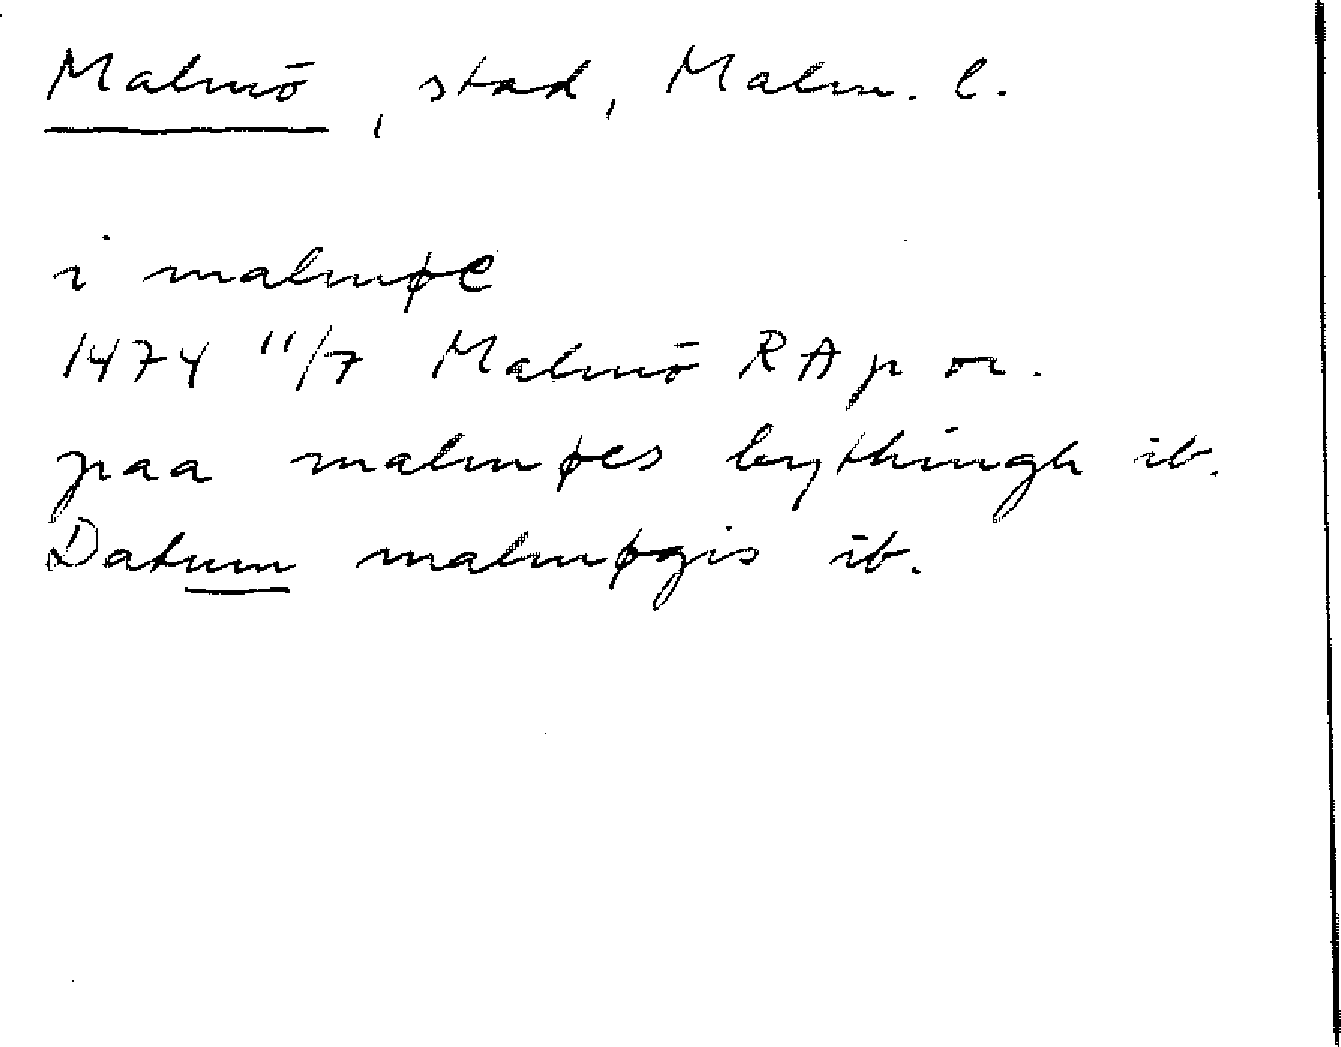 Malmö, stad, Malm. l.
i malmøe
1474 11/7 Malmö RA p or.
paa malmøes bythingh ib.
Datum malmøgis ib.